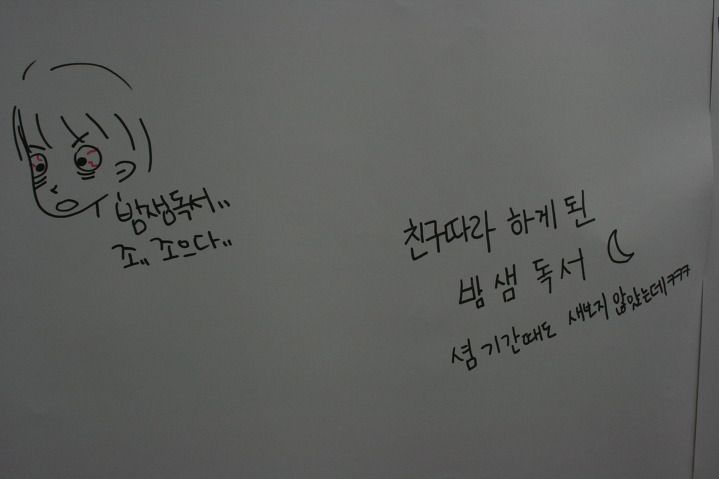 밤쌤독서..
죠.. 죠으다..
친구따라 하게 된
밤 샘 독서
셤 기간때도 새보지 않았는데ㅋㅋㅋ